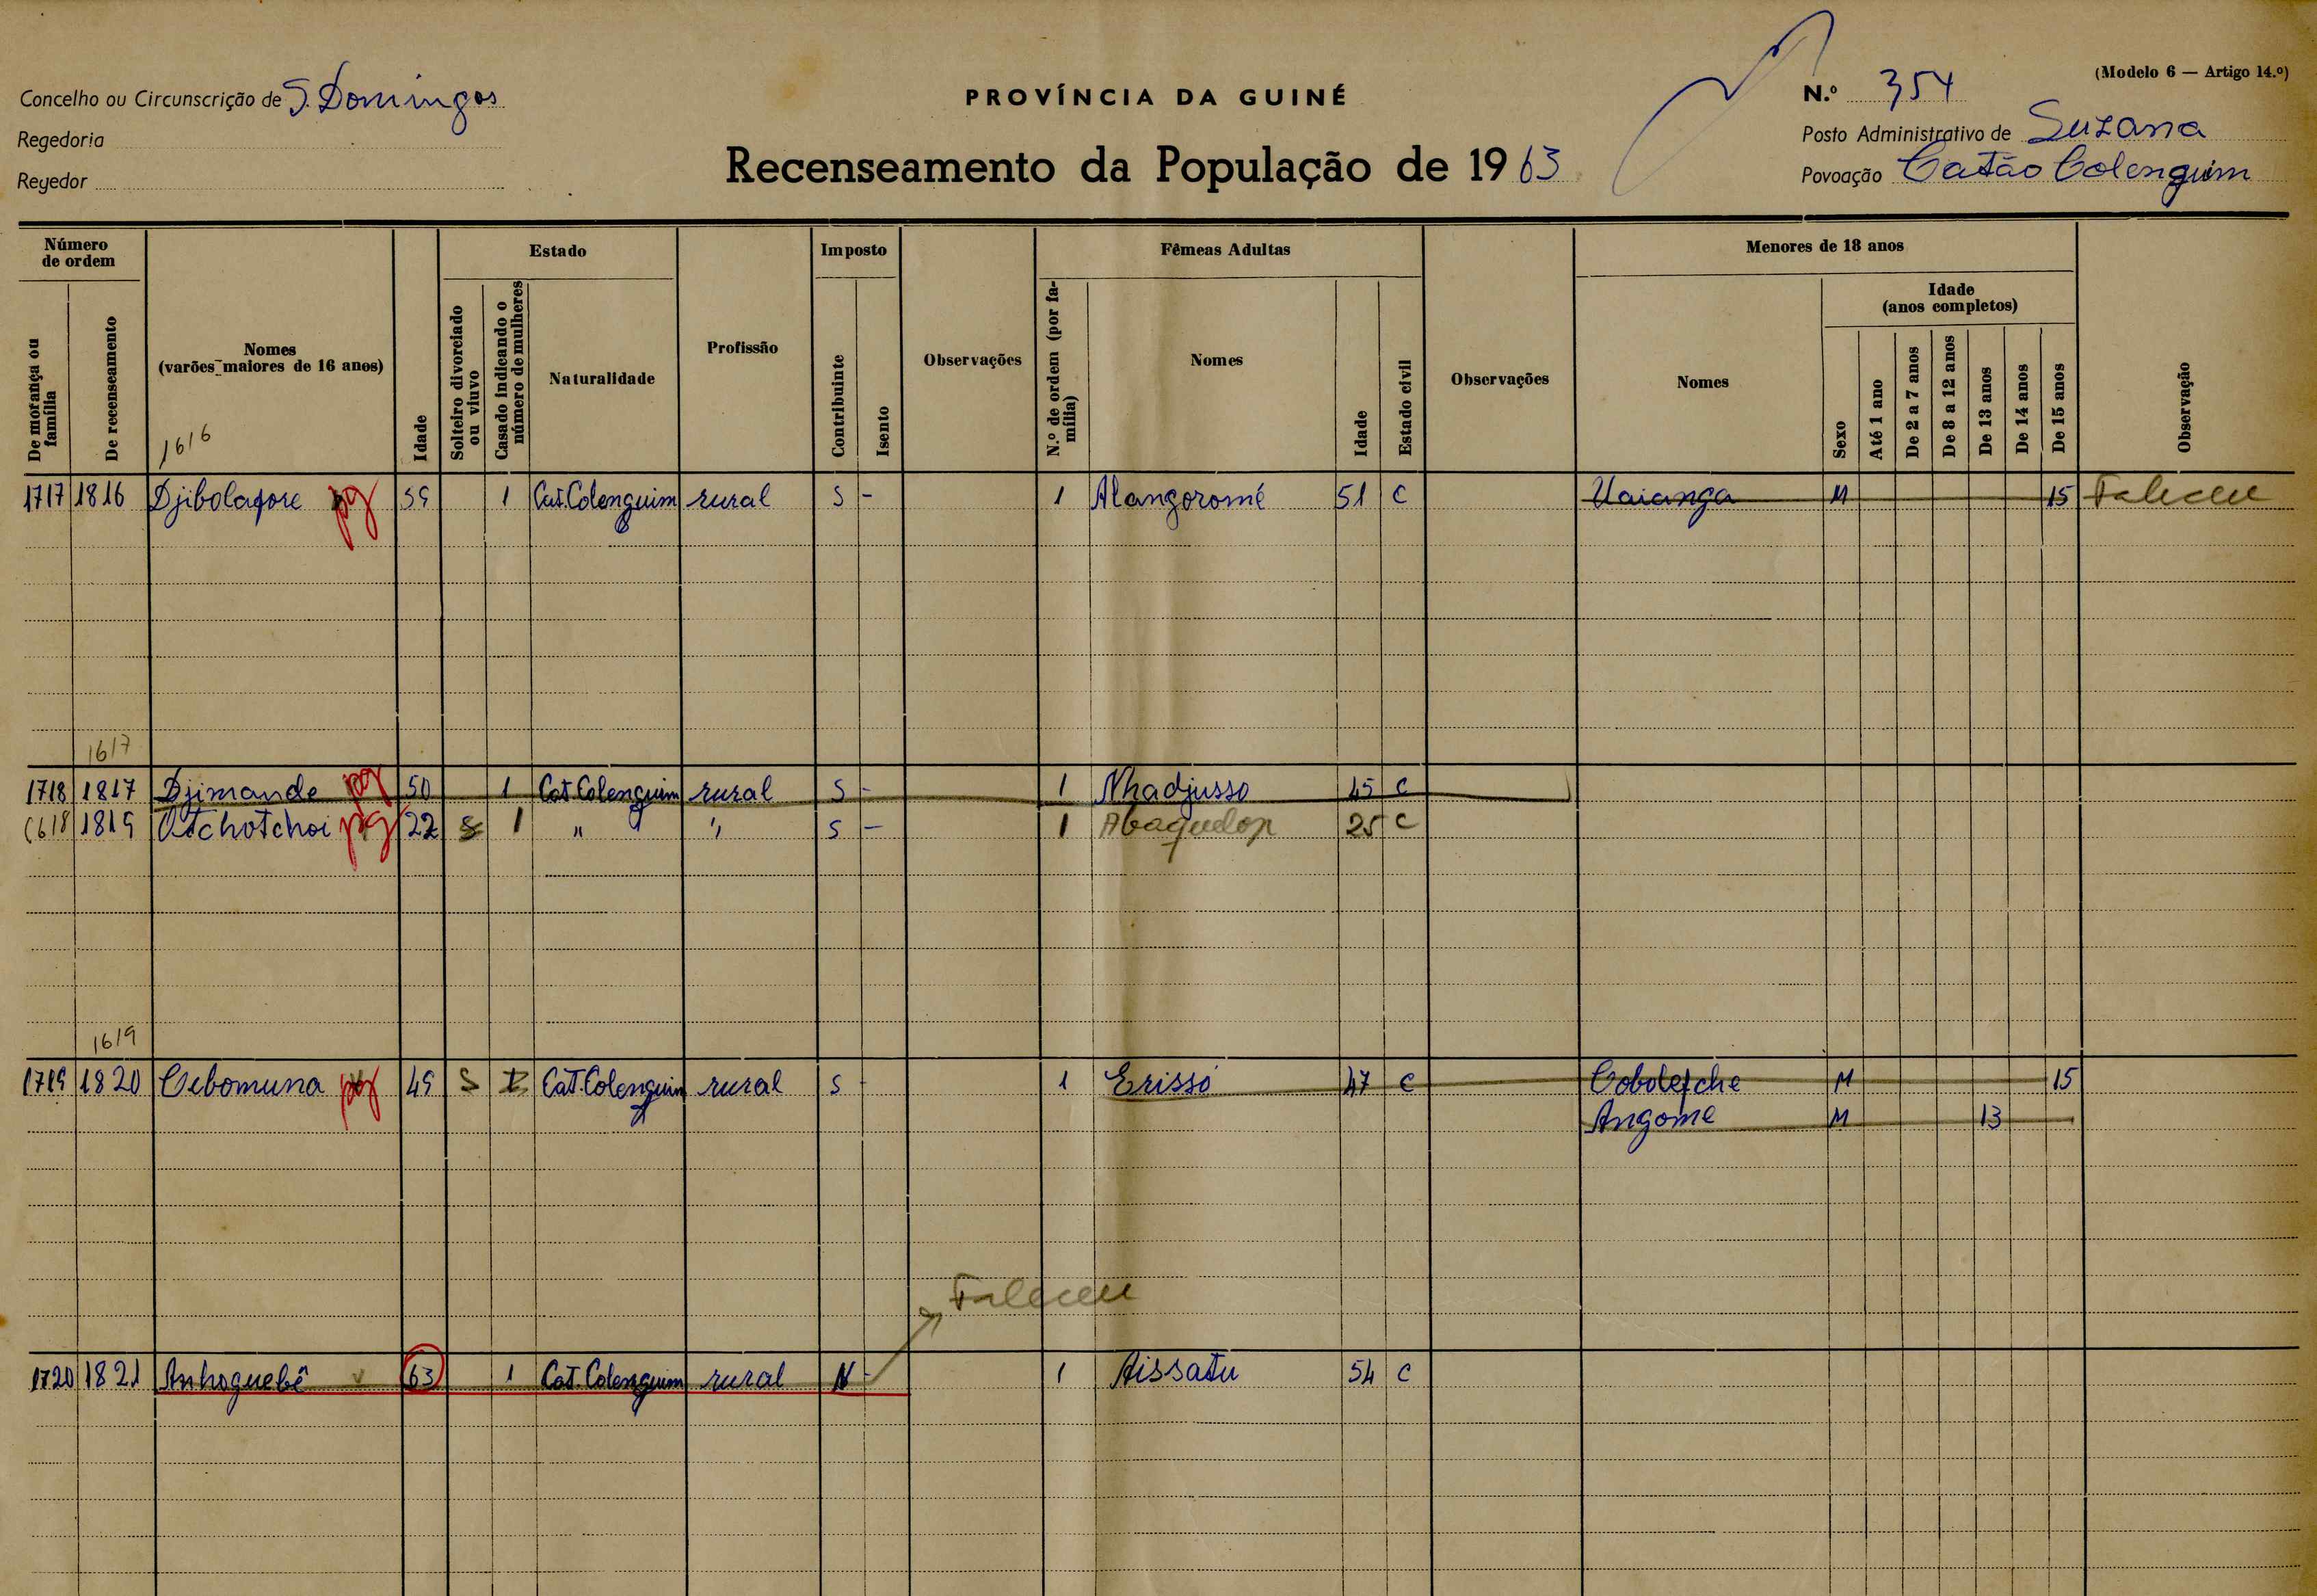 (Modelo 6 — Artigo 14.º)
Concelho ou Circunscrição de S. Domingos
PROVÍNCIA DA GUINÉ
N.º 354
Regedoria
Posto Administrativo de Suzana
Regedor
Recenseamento da População de 1963
Povoação Catão Colenguim
Número de ordem
De morança ou família
De recenseamento
Nomes (varões maiores de 16 anos)
1616
Idade
Estado
Solteiro divorciado ou viuvo
Casado indicando o número de mulheres
Naturalidade
Profissão
Imposto
Contribuinte
Isento
Observações
Fêmeas Adultas
N.º de ordem (por família)
Nomes
Idade
Estado civil
Observações
Menores de 18 anos
Nomes
Idade (anos completos)
Sexo
Até 1 ano
De 2 a 7 anos
De 8 a 12 anos
De 13 anos
De 14 anos
De 15 anos
Observação
1717 1816 Djibolafore pg 59 1 Cat. Colenguim rural S - 1 Alangoromé 51 C Uaianga M 15 Faleceu
1617
1718 1817 Djimande pg 50 1 Cat. Colenguim rural S - 1 Nhadjusso 45 C
1618 1819 Otchotchoi pg 22 S 1 " " S - 1 Abaquelop 25 C
1619
1719 1820 Cebomuna pg 49 S 1 Cat. Colenguim rural S - 1 Erissó 47 C Cobolefche M 15
Angome M 13
Faleceu
1720 1821 Anhoguebê 63 1 Cat. Colenguim rural N - 1 Aissatu 54 C